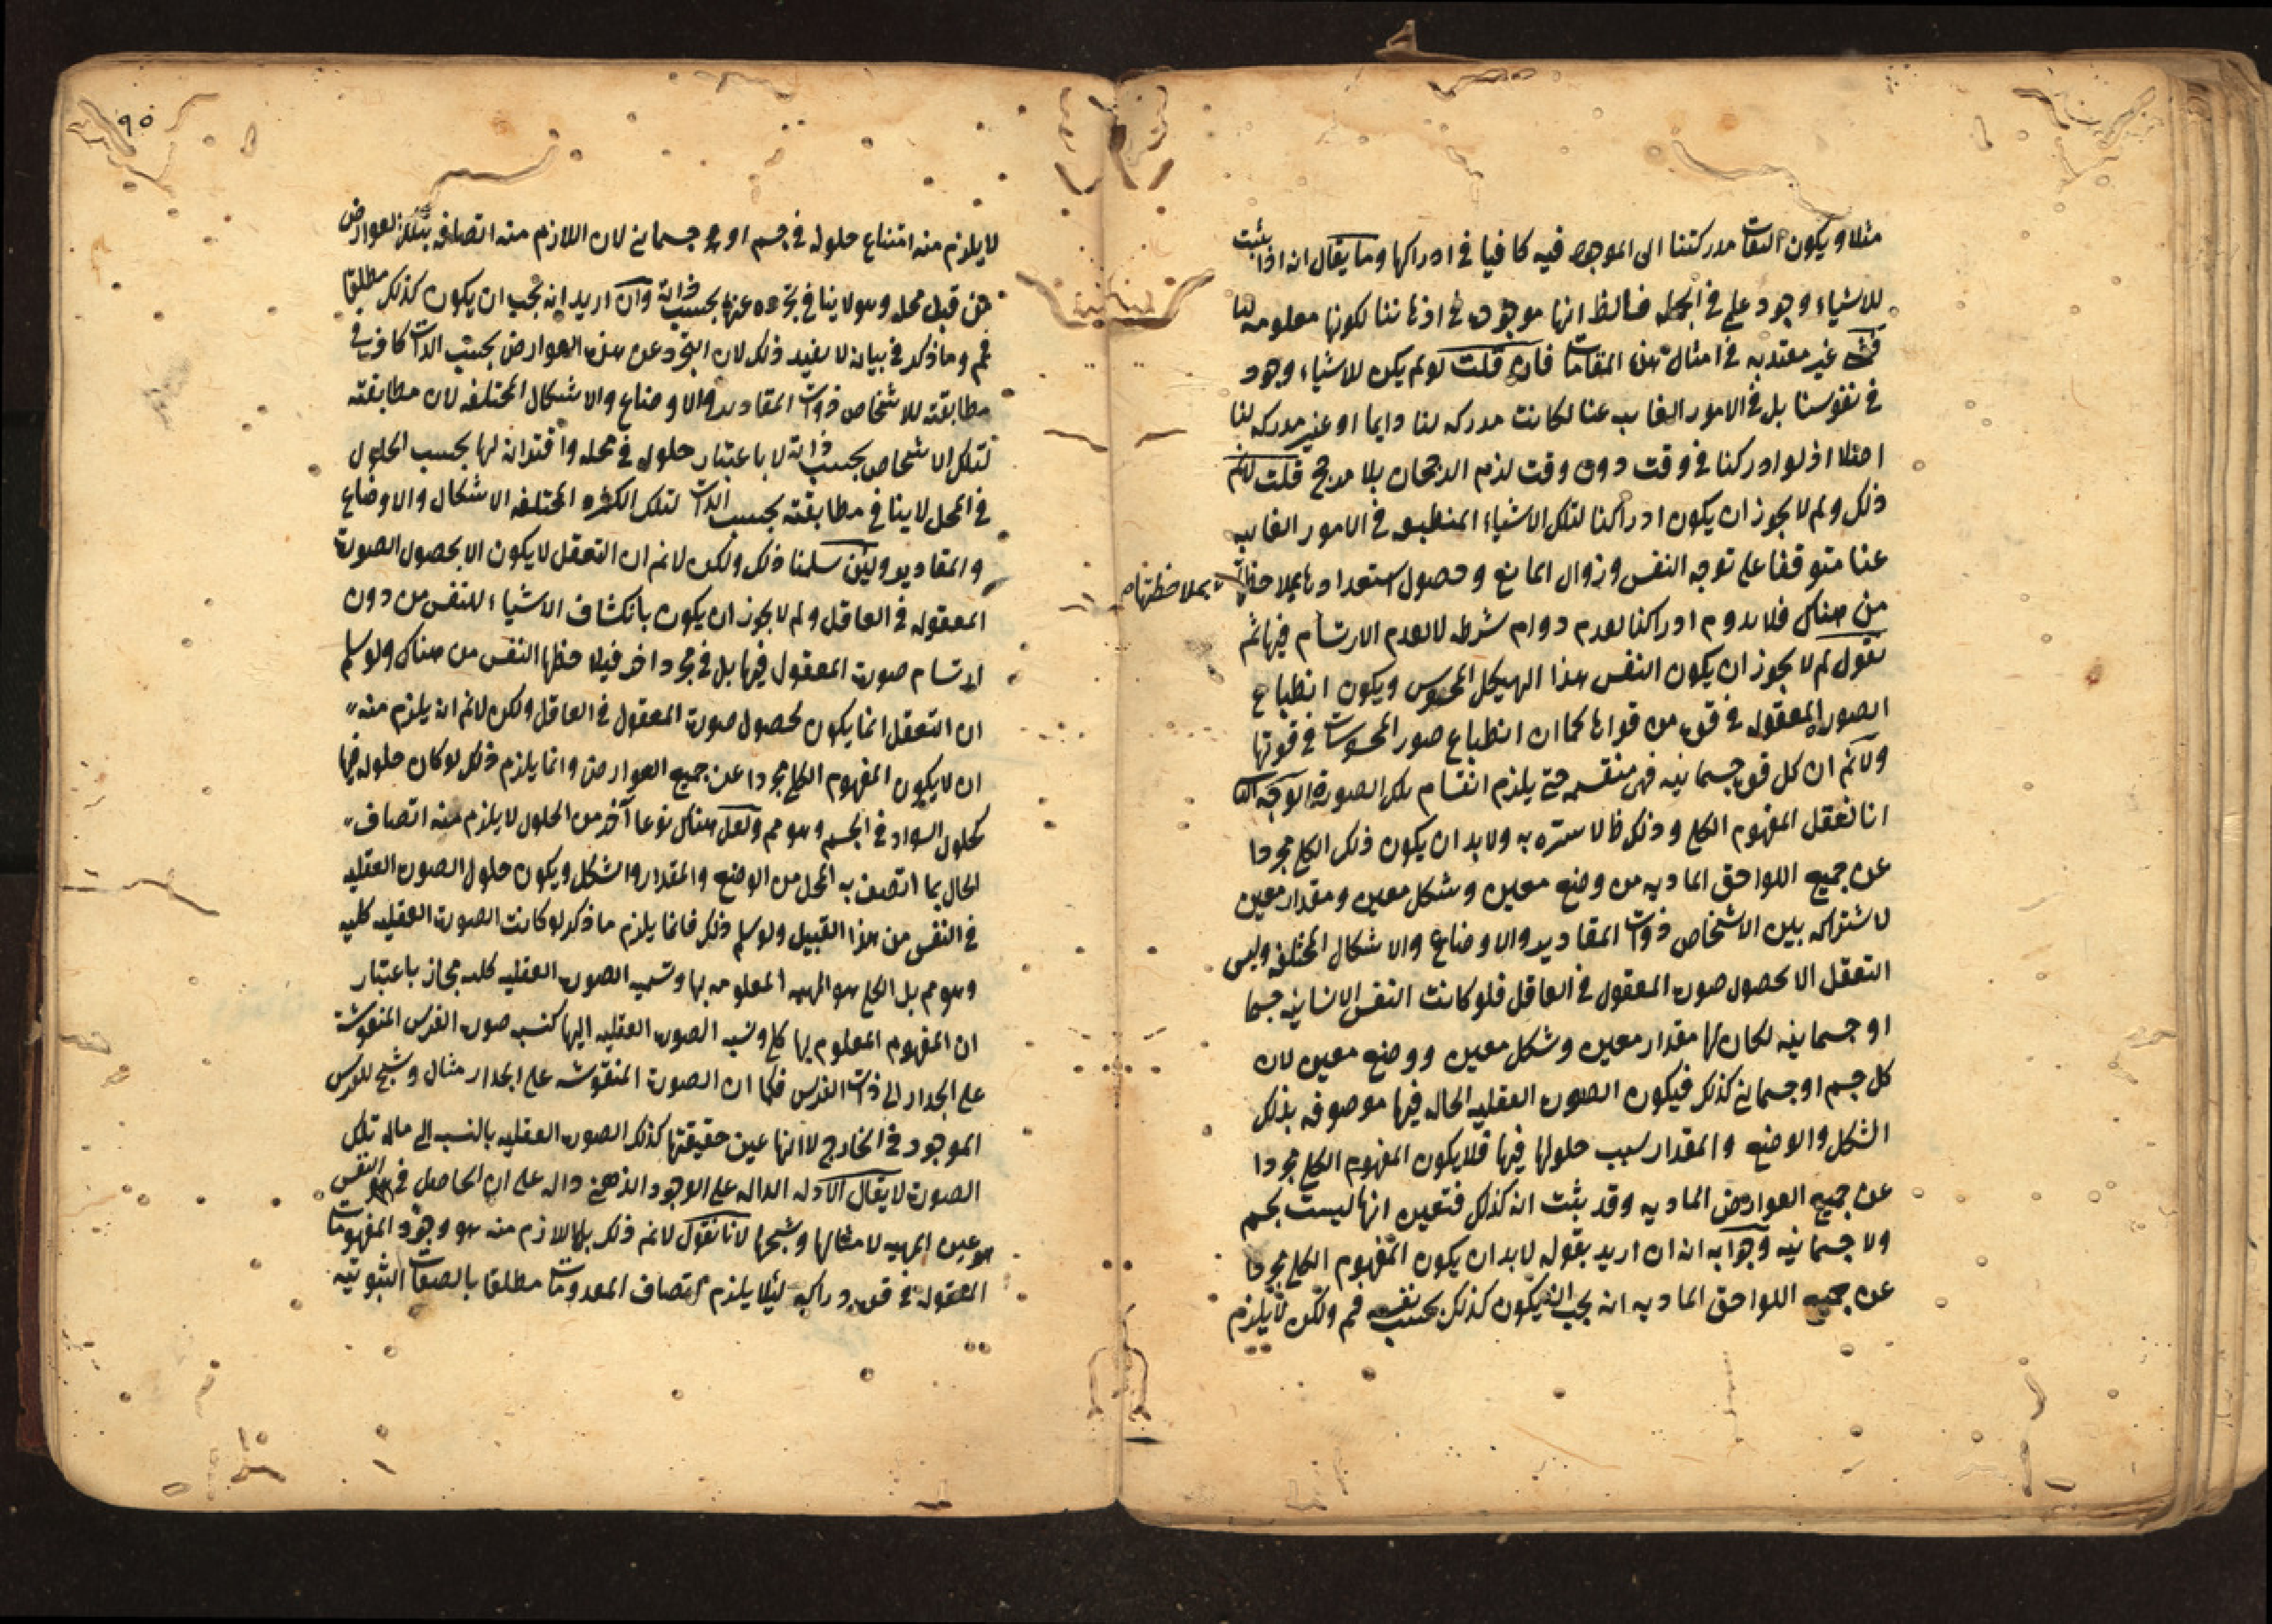 مثلا ويكون التفات مدركتنا الى الموجود فيه كافيا فى ادراكها وما يقال انه اذا ثبت
للاشياء وجود علمى فى الجملة فالظ انها موجودة فى اذهاننا لكونها معلومة لنا
فشئ غير معتد به فى امثال هذه المقامات فان قلت لو لم يكن للاشياء وجود
فى نفوسنا بل فى الامور الغايبه عنا لكانت مدركه لنا دايما او غير مدركه لنا
اصلا اذ لو ادركنا فى وقت دون وقت لزم الرجحان بلا مرجح قلت لانم
ذلك ولم لا يجوز ان يكون ادراكنا لتلك الاشياء المنطبعه فى الامور الغايبه
عنا متوقفا على توجه النفس وزوال المانع وحصول استعدادها بملاحظتها
بملاحظتها
من هناك فلا يدوم ادراكنا لعدم دوام شرطه لا لعدم الارتسام فيها ثم
نقول لم لا يجوز ان يكون النفس هذا الهيكل المحسوس ويكون انطباع
الصورة المعقوله فى قوة من قواها كما ان انطباع صور المحسوسات فى قوتها
ولانم ان كل قوة جسمانيه فهى منقسمة حتى يلزم انقسام تلك الصورة الوجه
انا نعقل المفهوم الكلى وذلك ظ لا سترة به ولا بد ان يكون ذلك الكلى مجردا
عن جميع اللواحق الماديه من وضع معين وشكل معين ومقدار معين
لاشتراكه بين الاشخاص ذوات المقادير والاوضاع والاشكال المختلفه وليس
التعقل الا بحصول صورة المعقول فى العاقل فلو كانت النفس الانسانيه جسما
او جسمانيه لكان لها مقدار معين وشكل معين ووضع معين لان
كل جسم او جسمانى كذلك فيكون الصورة العقليه الحاله فيها موصوفه بذلك
الشكل والوضع والمقدار بسبب حلولها فيها فلا يكون المفهوم الكلى مجردا
عن جميع العوارض الماديه وقد ثبت انه كذلك فتعين انها ليست بجسم
ولا جسمانيه وجوابه انه ان اريد بقوله لا بد ان يكون المفهوم الكلى مجردا
عن جميع اللواحق الماديه انه يجب ان يكون كذلك بحسب نفسه فم ولكن لا يلزم
٩٥
لا يلزم منه امتناع حلوله فى جسم او جسمانى لان اللازم منه اتصافه بتلك العوارض
من قبل محله وهو لا ينافى تجرده عنها بحسب ذاته وان اريد انه يجب ان يكون كذلك مطلقا
فم وما ذكر فى بيانه لا يفيد ذلك لان التجرد عن هذه العوارض بحسب الذات كاف فى
مطابقته للاشخاص ذوات المقادير والاوضاع والاشكال المختلفه لان مطابقته
لتلك الاشخاص بحسب ذاته لا باعتبار حلوله فى محله واقترانه لها بحسب الحلول
فى المحل لا ينافى مطابقته بحسب الذات لتلك الكثره المختلفه الاشكال والاوضاع
والمقادير ولئن سلمنا ذلك ولكن لانم ان التعقل لا يكون الا بحصول الصورة
المعقوله فى العاقل ولم لا يجوز ان يكون بانكشاف الاشياء للنفس من دون
ارتسام صورة المعقول فيها بل فى مجرد اخر فيلاحظها النفس من هناك ولو سلم
ان التعقل انما يكون لحصول صورة المعقول فى العاقل ولكن لانم انه يلزم منه
ان لا يكون المفهوم الكلى مجردا عن جميع العوارض وانما يلزم ذلك لو كان حلوله فيها
كحلول السواد فى الجسم وهو مم ولعل هناك نوعا آخر من الحلول لا يلزم منه اتصاف
الحال بما اتصف به المحل من الوضع والمقدار والشكل ويكون حلول الصورة العقليه
فى النفس من هذا القبيل ولو سلم ذلك فانما يلزم ما ذكر لو كانت الصورة العقليه كليه
وهو مم بل الكلى هو المهيه المعلومه بها وتسميه الصورة العقليه كليه مجاز باعتبار
ان المفهوم المعلوم بها كلى ونسبه الصورة العقليه اليها كنسبه صورة الفرس المنقوشة
على الجدار الى ذات الفرس فكما ان الصورة المنقوشه على الجدار مثال وشبح للفرس
الموجود فى الخارج لا انها عين حقيقتها كذلك الصورة العقليه بالنسبه الى ماله تلك
الصورة لا يقال الادله الداله على الوجود الذهنى داله على ان الحاصل فى النفس
هو عين المهيه لا مثالها وشبحها لانا نقول لانم ذلك بل اللازم منه هو وجود المفهومات
المعقوله فى قوة دراكه لئلا يلزم اتصاف المعدومات مطلقا بالصفات الثبوتيه